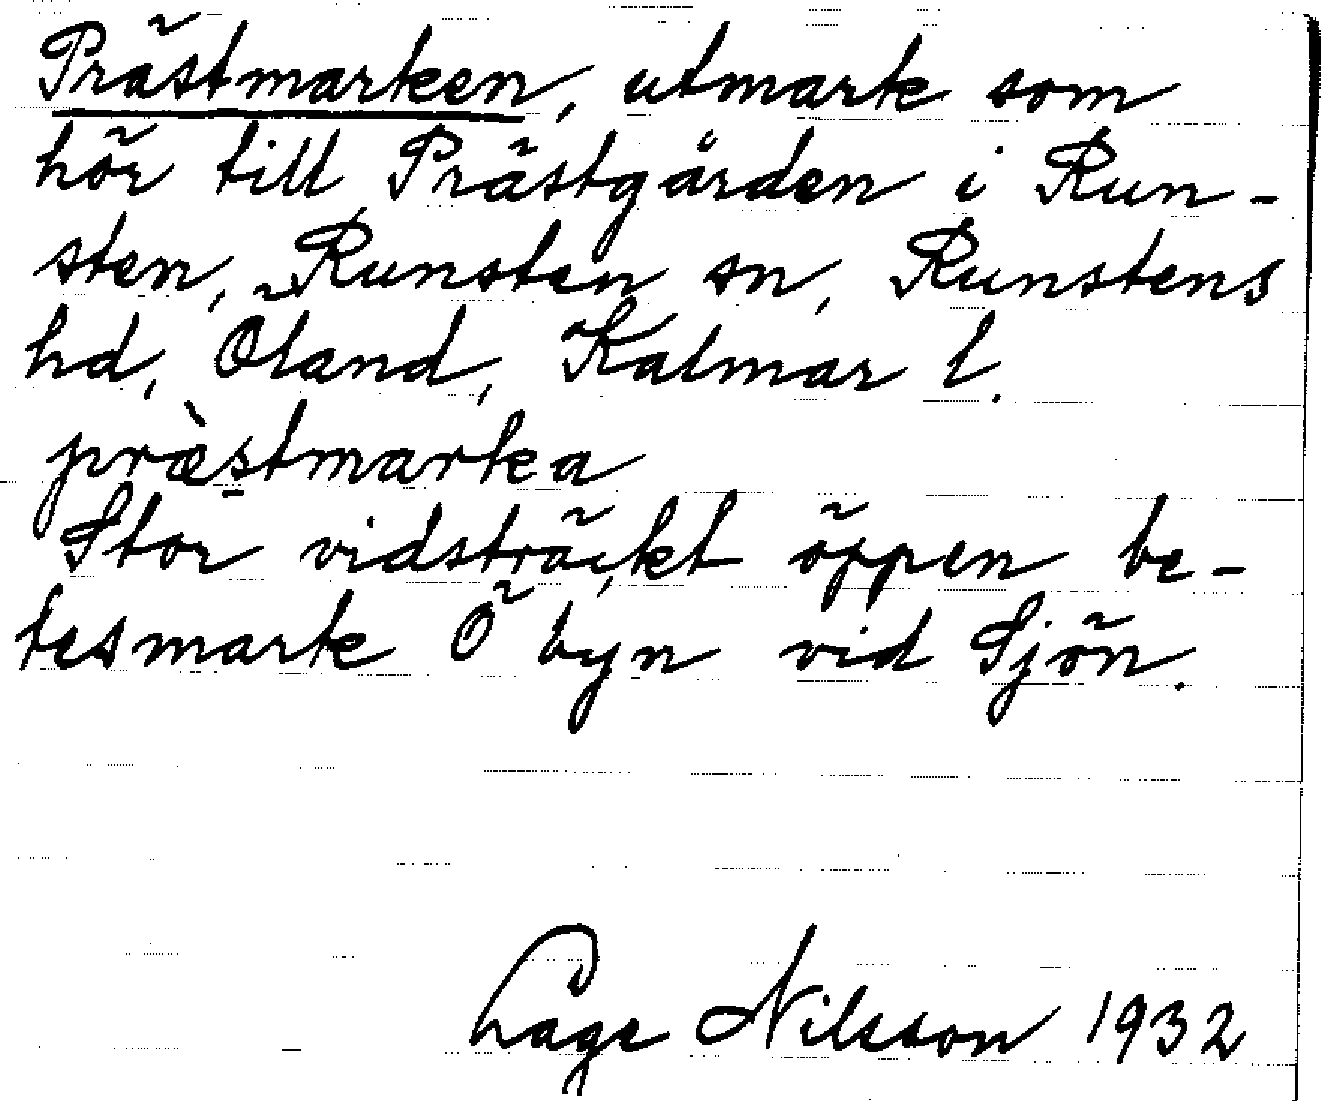 Prästmarken, utmark som
hör till Prästgården i Run-
sten, Runsten sn, Runstens
hd, Öland, Kalmar l.
præ̀s̠tmarka
Stor vidsträckt öppen be-
tesmark Ö byn vid Sjön.
Lage Nilsson 1932